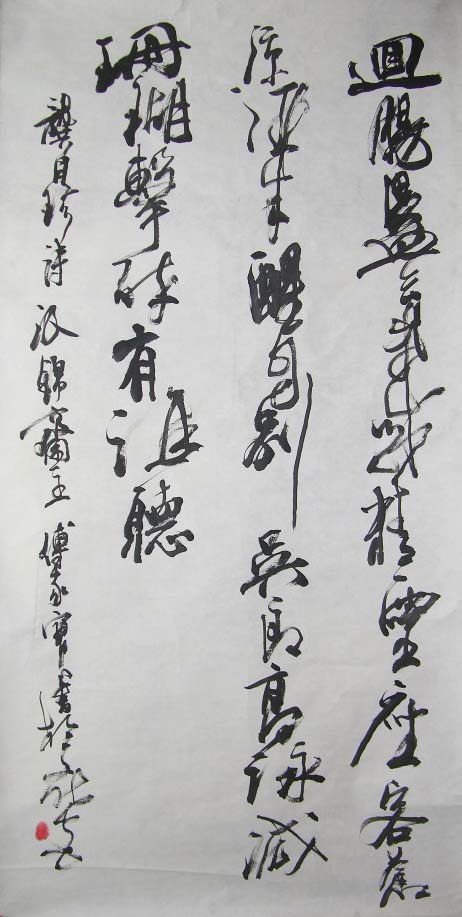 迴腸盪氣感精靈座客蒼
涼酒半醒自別吳郎高詠減
珊瑚擊碎有誰聽
龔自珍詩 汲錦齋主 傅家寶書於